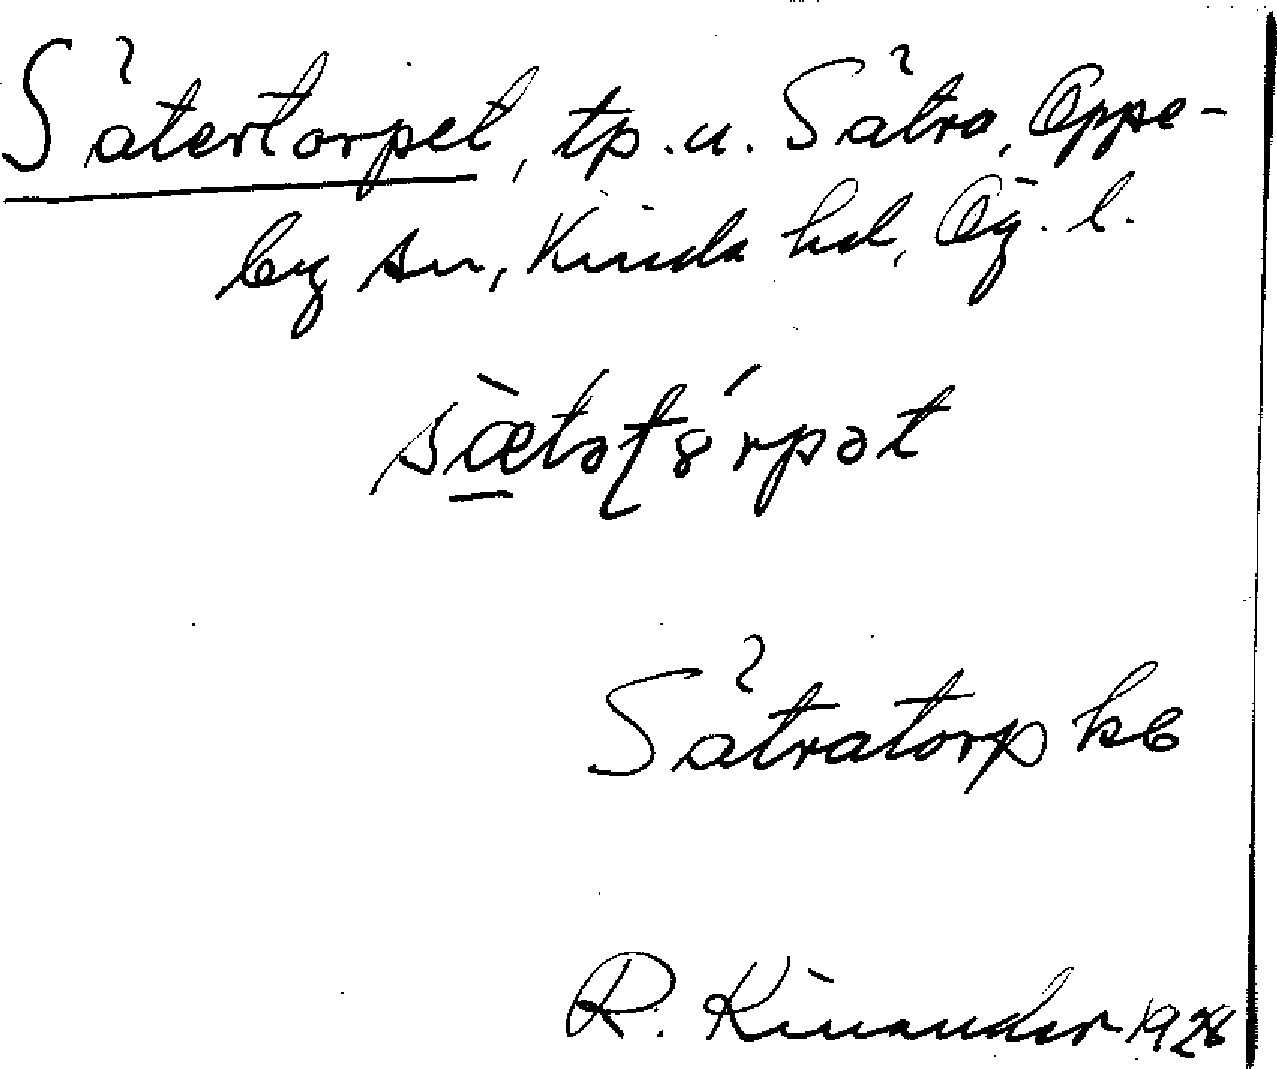 Sätertorpet, tp. u. Sätra, Oppe-
by sn, Kinda hd, Ög. l.
Sätratorp kb
R. Kinander 1928